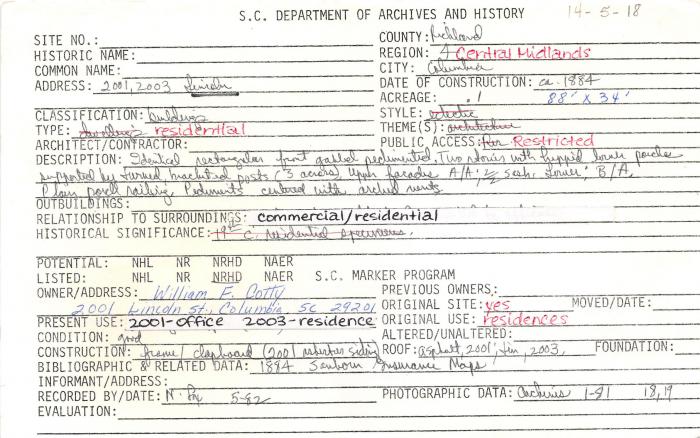 S.C. DEPARTMENT OF ARCHIVES AND HISTORY 14-5-18
SITE NO.: COUNTY: Richland
HISTORIC NAME: REGION: 4 Central Midlands
COMMON NAME: CITY: Columbia
ADDRESS: 2001, 2003 Lincoln DATE OF CONSTRUCTION: ca. 1884
ACREAGE: .1 88' X 34'
CLASSIFICATION: buildings STYLE: eclectic
TYPE: dwellings residential THEME(S): architecture
ARCHITECT/CONTRACTOR: PUBLIC ACCESS: Restricted
DESCRIPTION: Identical rectangular front gabled pedimented. Two stories with hipped lower porches
supported by turned bracketed posts (3 across) Upper facades A/A; 2/2 sash. Lower; B/A.
Plain porch railing. Pediments centered with arched vents
OUTBUILDINGS:
RELATIONSHIP TO SURROUNDINGS: commercial/residential
HISTORICAL SIGNIFICANCE: 19th C. residential specimens.
POTENTIAL: NHL NR NRHD NAER
LISTED: NHL NR NRHD NAER S.C. MARKER PROGRAM
OWNER/ADDRESS: William F. Cotty PREVIOUS OWNERS:
2001 Lincoln St., Columbia SC 29201 ORIGINAL SITE: yes MOVED/DATE:
PRESENT USE: 2001-office 2003-residence ORIGINAL USE: residences
CONDITION: good ALTERED/UNALTERED:
CONSTRUCTION: frame/clapboard (2001 asbestos siding) ROOF: asphalt, 2001; tin, 2003, FOUNDATION:
BIBLIOGRAPHIC & RELATED DATA: 1884 Sanborn Insurance Maps
INFORMANT/ADDRESS:
RECORDED BY/DATE: N. Fox 5-82 PHOTOGRAPHIC DATA: Archives 1-81 18,19
EVALUATION: